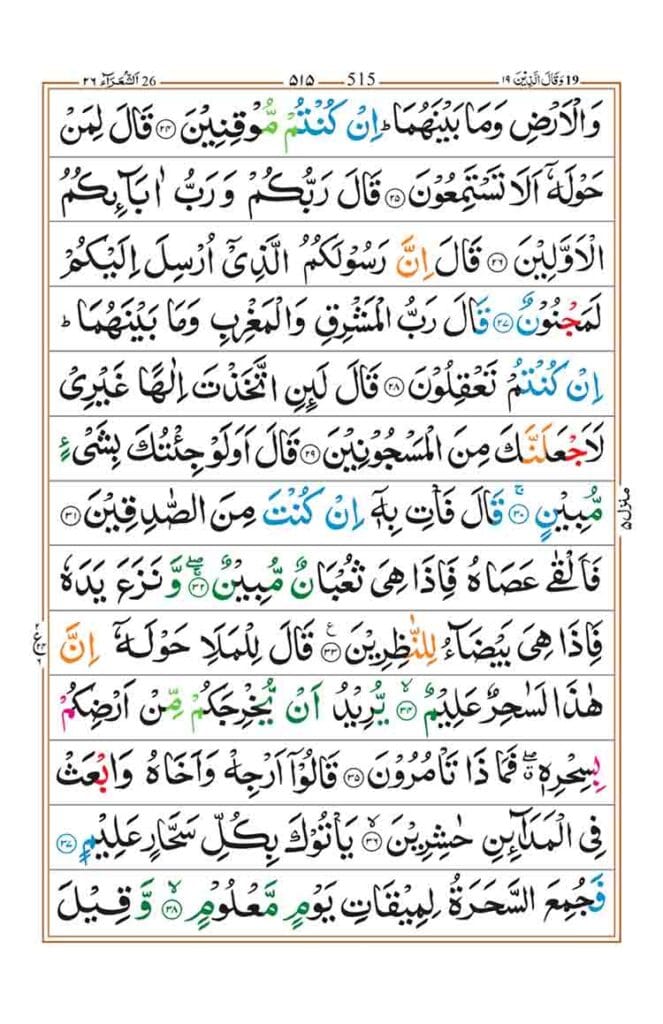 19 وَقَالَ الَّذِيْنَ ١٩ 515 ۵۱۵ 26 اَلشُّعَرَآء ٢٦
وَالْاَرْضِ وَمَا بَيْنَهُمَا ؕ اِنْ كُنْتُمْ مُّوْقِنِيْنَ ۝۲۴ قَالَ لِمَنْ
حَوْلَهٗۤ اَلَا تَسْتَمِعُوْنَ ۝۲۵ قَالَ رَبُّكُمْ وَ رَبُّ اٰبَآئِكُمُ
الْاَوَّلِيْنَ ۝۲۶ قَالَ اِنَّ رَسُوْلَكُمُ الَّذِيْۤ اُرْسِلَ اِلَيْكُمْ
لَمَجْنُوْنٌ ۝۲۷ قَالَ رَبُّ الْمَشْرِقِ وَالْمَغْرِبِ وَمَا بَيْنَهُمَا ؕ
اِنْ كُنْتُمْ تَعْقِلُوْنَ ۝۲۸ قَالَ لَئِنِ اتَّخَذْتَ اِلٰهًا غَيْرِيْ
لَاَجْعَلَنَّكَ مِنَ الْمَسْجُوْنِيْنَ ۝۲۹ قَالَ اَوَلَوْ جِئْتُكَ بِشَيْءٍ
مُّبِيْنٍ ۝۳۰ۚ قَالَ فَاْتِ بِهٖۤ اِنْ كُنْتَ مِنَ الصّٰدِقِيْنَ ۝۳۱
منزل ۵
فَاَلْقٰى عَصَاهُ فَاِذَا هِيَ ثُعْبَانٌ مُّبِيْنٌ ۝۳۲ۚۖ وَّ نَزَعَ يَدَهٗ
فَاِذَا هِيَ بَيْضَآءُ لِلنّٰظِرِيْنَ ۝۳۳ع قَالَ لِلْمَلَاِ حَوْلَهٗۤ اِنَّ
هٰذَا لَسٰحِرٌ عَلِيْمٌ ۝۳۴ۙ يُّرِيْدُ اَنْ يُّخْرِجَكُمْ مِّنْ اَرْضِكُمْ
بِسِحْرِهٖ ۖۗ فَمَا ذَا تَاْمُرُوْنَ ۝۳۵ قَالُوْۤا اَرْجِهْ وَاَخَاهُ وَابْعَثْ
فِي الْمَدَآئِنِ حٰشِرِيْنَ ۝۳۶ۙ يَاْتُوْكَ بِكُلِّ سَحَّارٍ عَلِيْمٍ ۝۳۷
فَجُمِعَ السَّحَرَةُ لِمِيْقَاتِ يَوْمٍ مَّعْلُوْمٍ ۝۳۸ۙ وَّ قِيْلَ